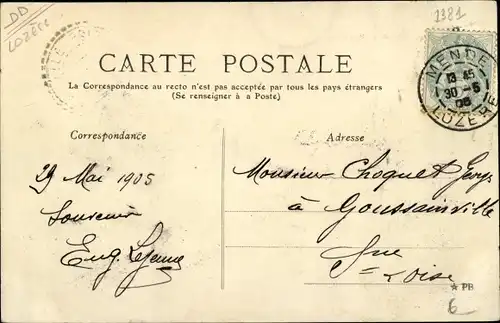 DD
LOZÈRE
1381
MENDE
13 45
30 -5
05
LOZÈRE
CARTE POSTALE
La Correspondance au recto n'est pas acceptée par tous les pays étrangers
(Se renseigner à a Poste)
Correspondance
Adresse
29 Mai 1905
Souvenir
Eug. Lejeune
Monsieur Choquet
à Goussainville
S-&-Oise
★ PB
6